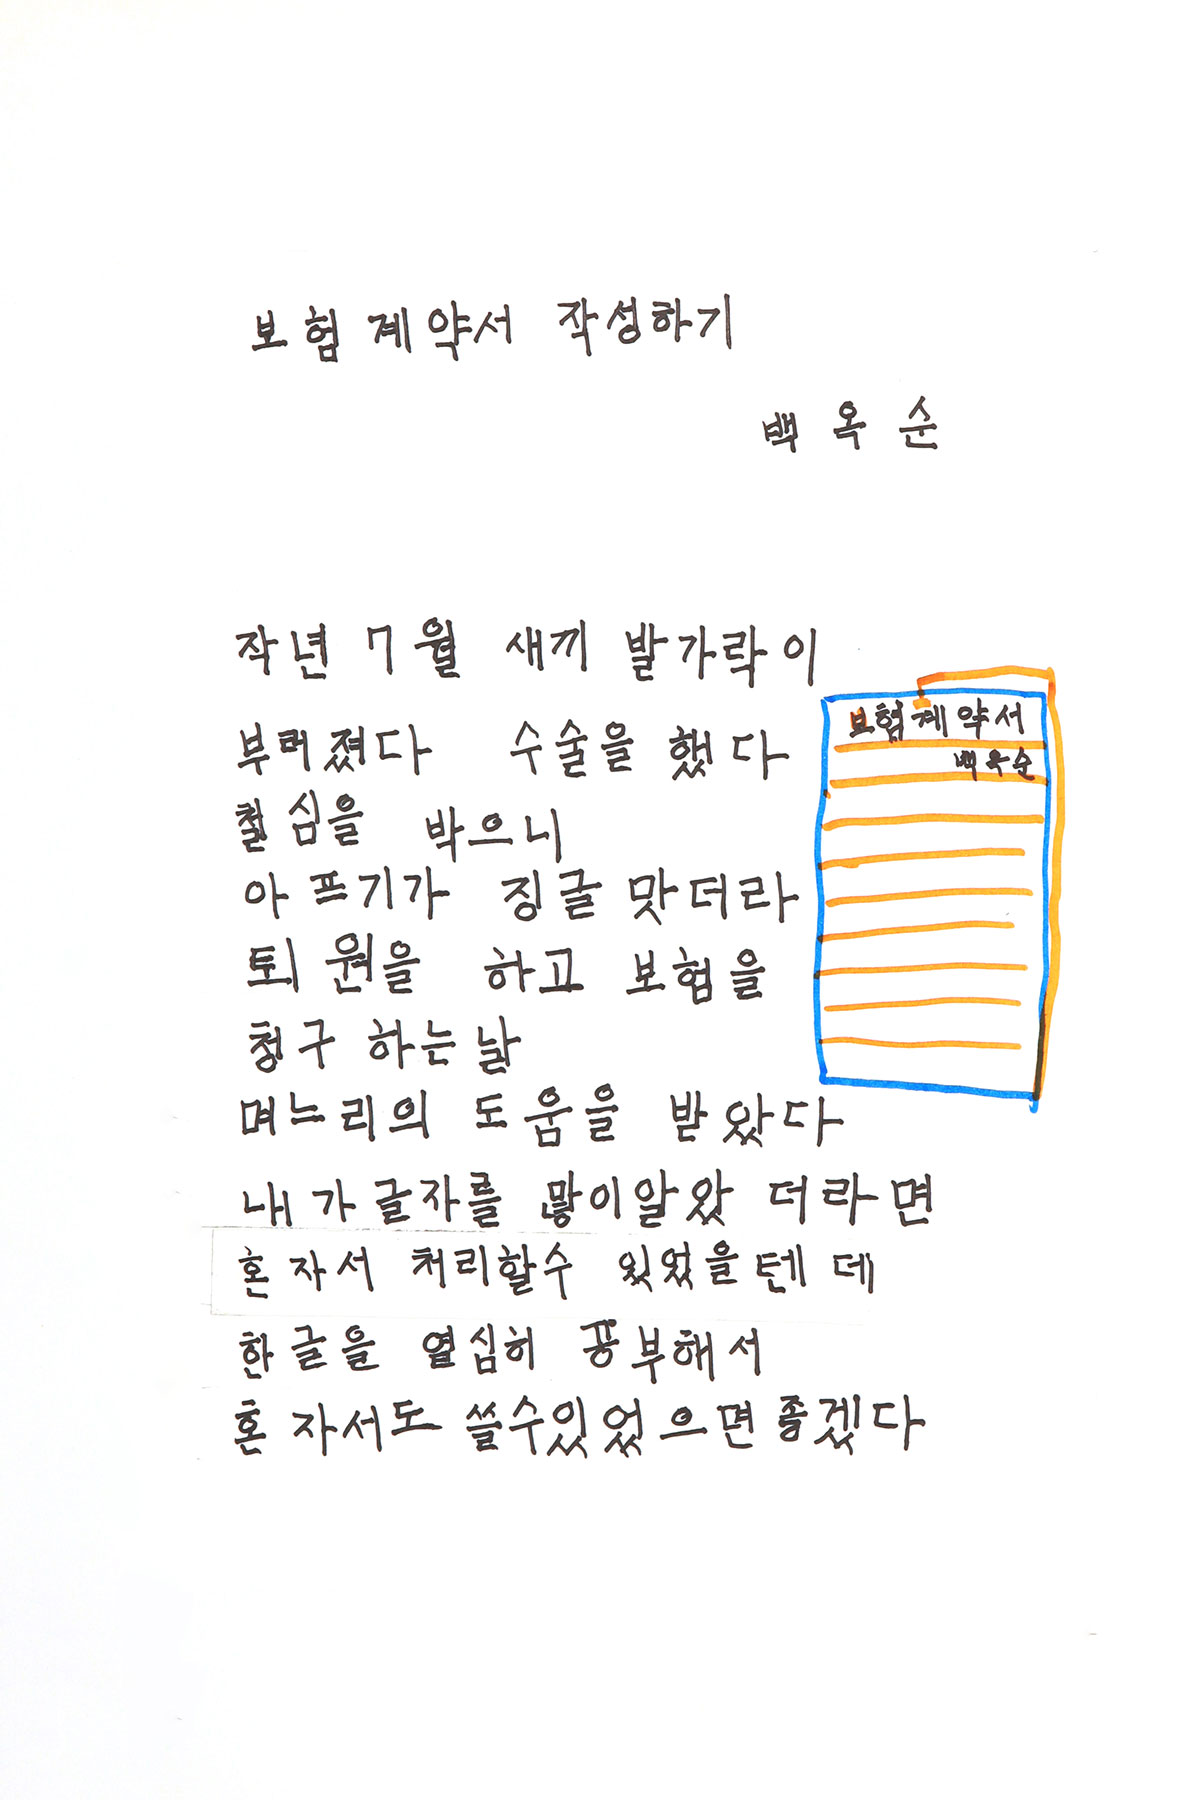 보험 계약서 작성하기
백옥순
작년 7월 새끼 발가락이
부러졌다 수술을 했다
철심을 박으니
아프기가 징글맞더라
퇴원을 하고 보험을
청구 하는날
며느리의 도움을 받았다
내가 글자를 많이알았 더라면
혼자서 처리할수 있었을텐데
한글을 열심히 공부해서
혼자서도 쓸수있었으면좋겠다
보험계약서
백옥순